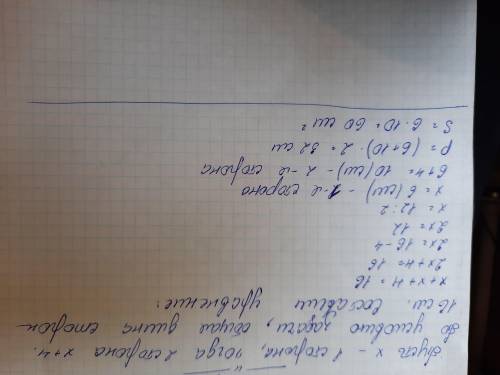 Пусть x - 1 сторона, тогда 2 сторона x+4.
По условию задачи, общая длина сторон
16 см. Составим уравнение:
x+x+4=16
2x+4=16
2x=16-4
2x=12
x=12:2
x=6(см) - 1-я сторона
6+4=10(см) - 2-я сторона
P=(6+10)·2=32 см
S=6·10=60 см²